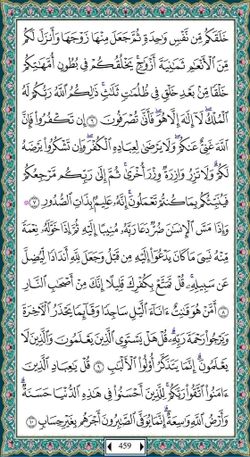 خَلَقَكُم مِّن نَّفْسٍ وَٰحِدَةٍ ثُمَّ جَعَلَ مِنْهَا زَوْجَهَا وَأَنزَلَ لَكُم
مِّنَ ٱلْأَنْعَٰمِ ثَمَٰنِيَةَ أَزْوَٰجٍ ۚ يَخْلُقُكُمْ فِى بُطُونِ أُمَّهَٰتِكُمْ
خَلْقًا مِّنۢ بَعْدِ خَلْقٍ فِى ظُلُمَٰتٍ ثَلَٰثٍ ۚ ذَٰلِكُمُ ٱللَّهُ رَبُّكُمْ لَهُ
ٱلْمُلْكُ ۖ لَآ إِلَٰهَ إِلَّا هُوَ ۖ فَأَنَّىٰ تُصْرَفُونَ ٦ إِن تَكْفُرُوا۟ فَإِنَّ
ٱللَّهَ غَنِىٌّ عَنكُمْ ۖ وَلَا يَرْضَىٰ لِعِبَادِهِ ٱلْكُفْرَ ۖ وَإِن تَشْكُرُوا۟ يَرْضَهُ
لَكُمْ ۗ وَلَا تَزِرُ وَازِرَةٌ وِزْرَ أُخْرَىٰ ۗ ثُمَّ إِلَىٰ رَبِّكُم مَّرْجِعُكُمْ
فَيُنَبِّئُكُم بِمَا كُنتُمْ تَعْمَلُونَ ۚ إِنَّهُۥ عَلِيمٌۢ بِذَاتِ ٱلصُّدُورِ ٧
وَإِذَا مَسَّ ٱلْإِنسَٰنَ ضُرٌّ دَعَا رَبَّهُۥ مُنِيبًا إِلَيْهِ ثُمَّ إِذَا خَوَّلَهُۥ نِعْمَةً
مِّنْهُ نَسِىَ مَا كَانَ يَدْعُوٓا۟ إِلَيْهِ مِن قَبْلُ وَجَعَلَ لِلَّهِ أَندَادًا لِّيُضِلَّ
عَن سَبِيلِهِۦ ۚ قُلْ تَمَتَّعْ بِكُفْرِكَ قَلِيلًا ۖ إِنَّكَ مِنْ أَصْحَٰبِ ٱلنَّارِ
٨ أَمَّنْ هُوَ قَٰنِتٌ ءَانَآءَ ٱلَّيْلِ سَاجِدًا وَقَآئِمًا يَحْذَرُ ٱلْءَاخِرَةَ
وَيَرْجُوا۟ رَحْمَةَ رَبِّهِۦ ۗ قُلْ هَلْ يَسْتَوِى ٱلَّذِينَ يَعْلَمُونَ وَٱلَّذِينَ لَا
يَعْلَمُونَ ۗ إِنَّمَا يَتَذَكَّرُ أُو۟لُوا۟ ٱلْأَلْبَٰبِ ٩ قُلْ يَٰعِبَادِ ٱلَّذِينَ
ءَامَنُوا۟ ٱتَّقُوا۟ رَبَّكُمْ ۚ لِلَّذِينَ أَحْسَنُوا۟ فِى هَٰذِهِ ٱلدُّنْيَا حَسَنَةٌ ۗ
وَأَرْضُ ٱللَّهِ وَٰسِعَةٌ ۗ إِنَّمَا يُوَفَّى ٱلصَّٰبِرُونَ أَجْرَهُم بِغَيْرِ حِسَابٍ ١٠
459